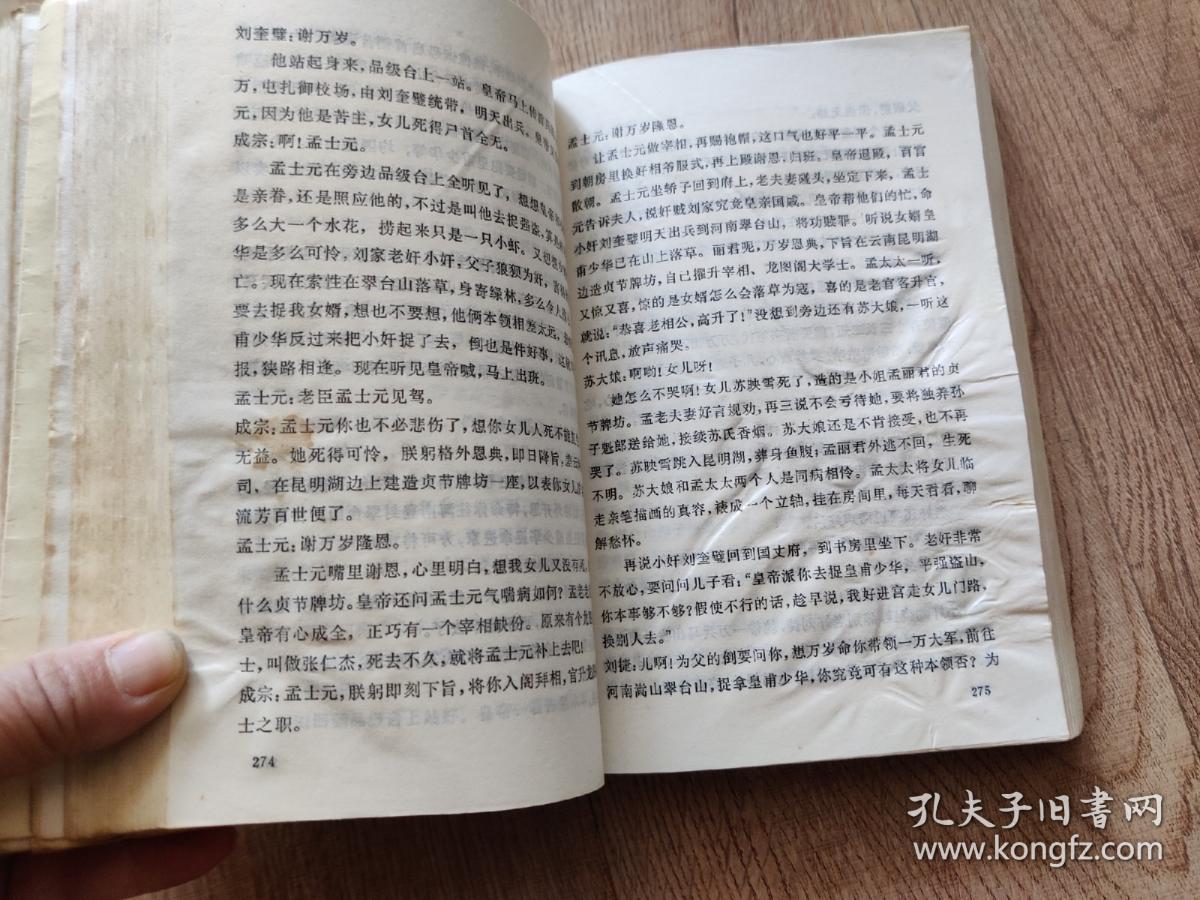 刘奎璧：谢万岁。
他站起身来，品级台上一站。皇帝马上传旨
万，屯扎御校场，由刘奎璧统带，明天出兵。皇帝
元，因为他是苦主，女儿死得尸首全无。
成宗：啊！孟士元。
孟士元在旁边品级台上全听见了，想想
是亲眷，还是照应他的，不过是叫他去捉强盗，
多么大一个水花，捞起来只是一只小虾。又想
华是多么可怜，刘家老奸小奸，父子狼狈为奸，
亡。现在索性在翠台山落草，身寄绿林，多么令人
要去捉我女婿，想也不要想，他俩本领相差太远，
甫少华反过来把小奸捉了去，倒也是件好事，这
报，狭路相逢。现在听见皇帝喊，马上出班。
孟士元：老臣孟士元见驾。
成宗：孟士元你也不必悲伤了，想你女儿人死不能
无益。她死得可怜，朕躬格外恩典，即日降旨，
司，在昆明湖边上建造贞节牌坊一座，以表你女儿
流芳百世便了。
孟士元：谢万岁隆恩。
孟士元嘴里谢恩，心里明白，想我女儿又没有死，
什么贞节牌坊。皇帝还问孟士元气喘病如何？孟老
皇帝有心成全，正巧有一个宰相缺份。原来有个龙
士，叫做张仁杰，死去不久，就将孟士元补上去吧！
成宗：孟士元，朕躬即刻下旨，将你入阁拜相，官升龙
士之职。
274
孟士元：谢万岁隆恩。
让孟士元做宰相，再赐袍帽，这口气也好平一平。孟士元
到朝房里换好相爷服式，再上殿谢恩，归班。皇帝退殿，百官
散朝。孟士元坐轿子回到府上，老夫妻碰头，坐定下来，孟士
元告诉夫人，说奸贼刘家究竟皇亲国戚。皇帝帮他们的忙，命
小奸刘奎璧明天出兵到河南翠台山，将功赎罪。听说女婿皇
甫少华已在山上落草。丽君呢，万岁恩典，下旨在云南昆明湖
边造贞节牌坊，自己擢升宰相、龙图阁大学士。孟太太一听，
又惊又喜，惊的是女婿怎么会落草为寇，喜的是老官客升官，
就说：“恭喜老相公，高升了！”没想到旁边还有苏大娘，一听这
个讯息，放声痛哭。
苏大娘：啊哟！女儿呀！
她怎么不哭啊！女儿苏映雪死了，造的是小姐孟丽君的贞
节牌坊。孟老夫妻好言规劝，再三说不会亏待她，要将独养孙
子魁郎送给她，接续苏氏香烟。苏大娘还是不肯接受，也不再
哭了。苏映雪跳入昆明湖，葬身鱼腹；孟丽君外逃不回，生死
不明。苏大娘和孟太太两个人是同病相怜。孟太太将女儿临
走亲笔描画的真容，裱成一个立轴，挂在房间里，每天看看，聊
解愁怀。
再说小奸刘奎璧回到国丈府，到书房里坐下。老奸非常
不放心，要问问儿子看：“皇帝派你去捉皇甫少华，平强盗山，
你本事够不够？假使不行的话，趁早说，我好进宫走女儿门路，
换别人去。”
刘捷：儿啊！为父的倒要问你，想万岁命你带领一万大军，前往
河南嵩山翠台山，捉拿皇甫少华，你究竟可有这种本领否？为
275
孔夫子旧书网
www.kongfz.com